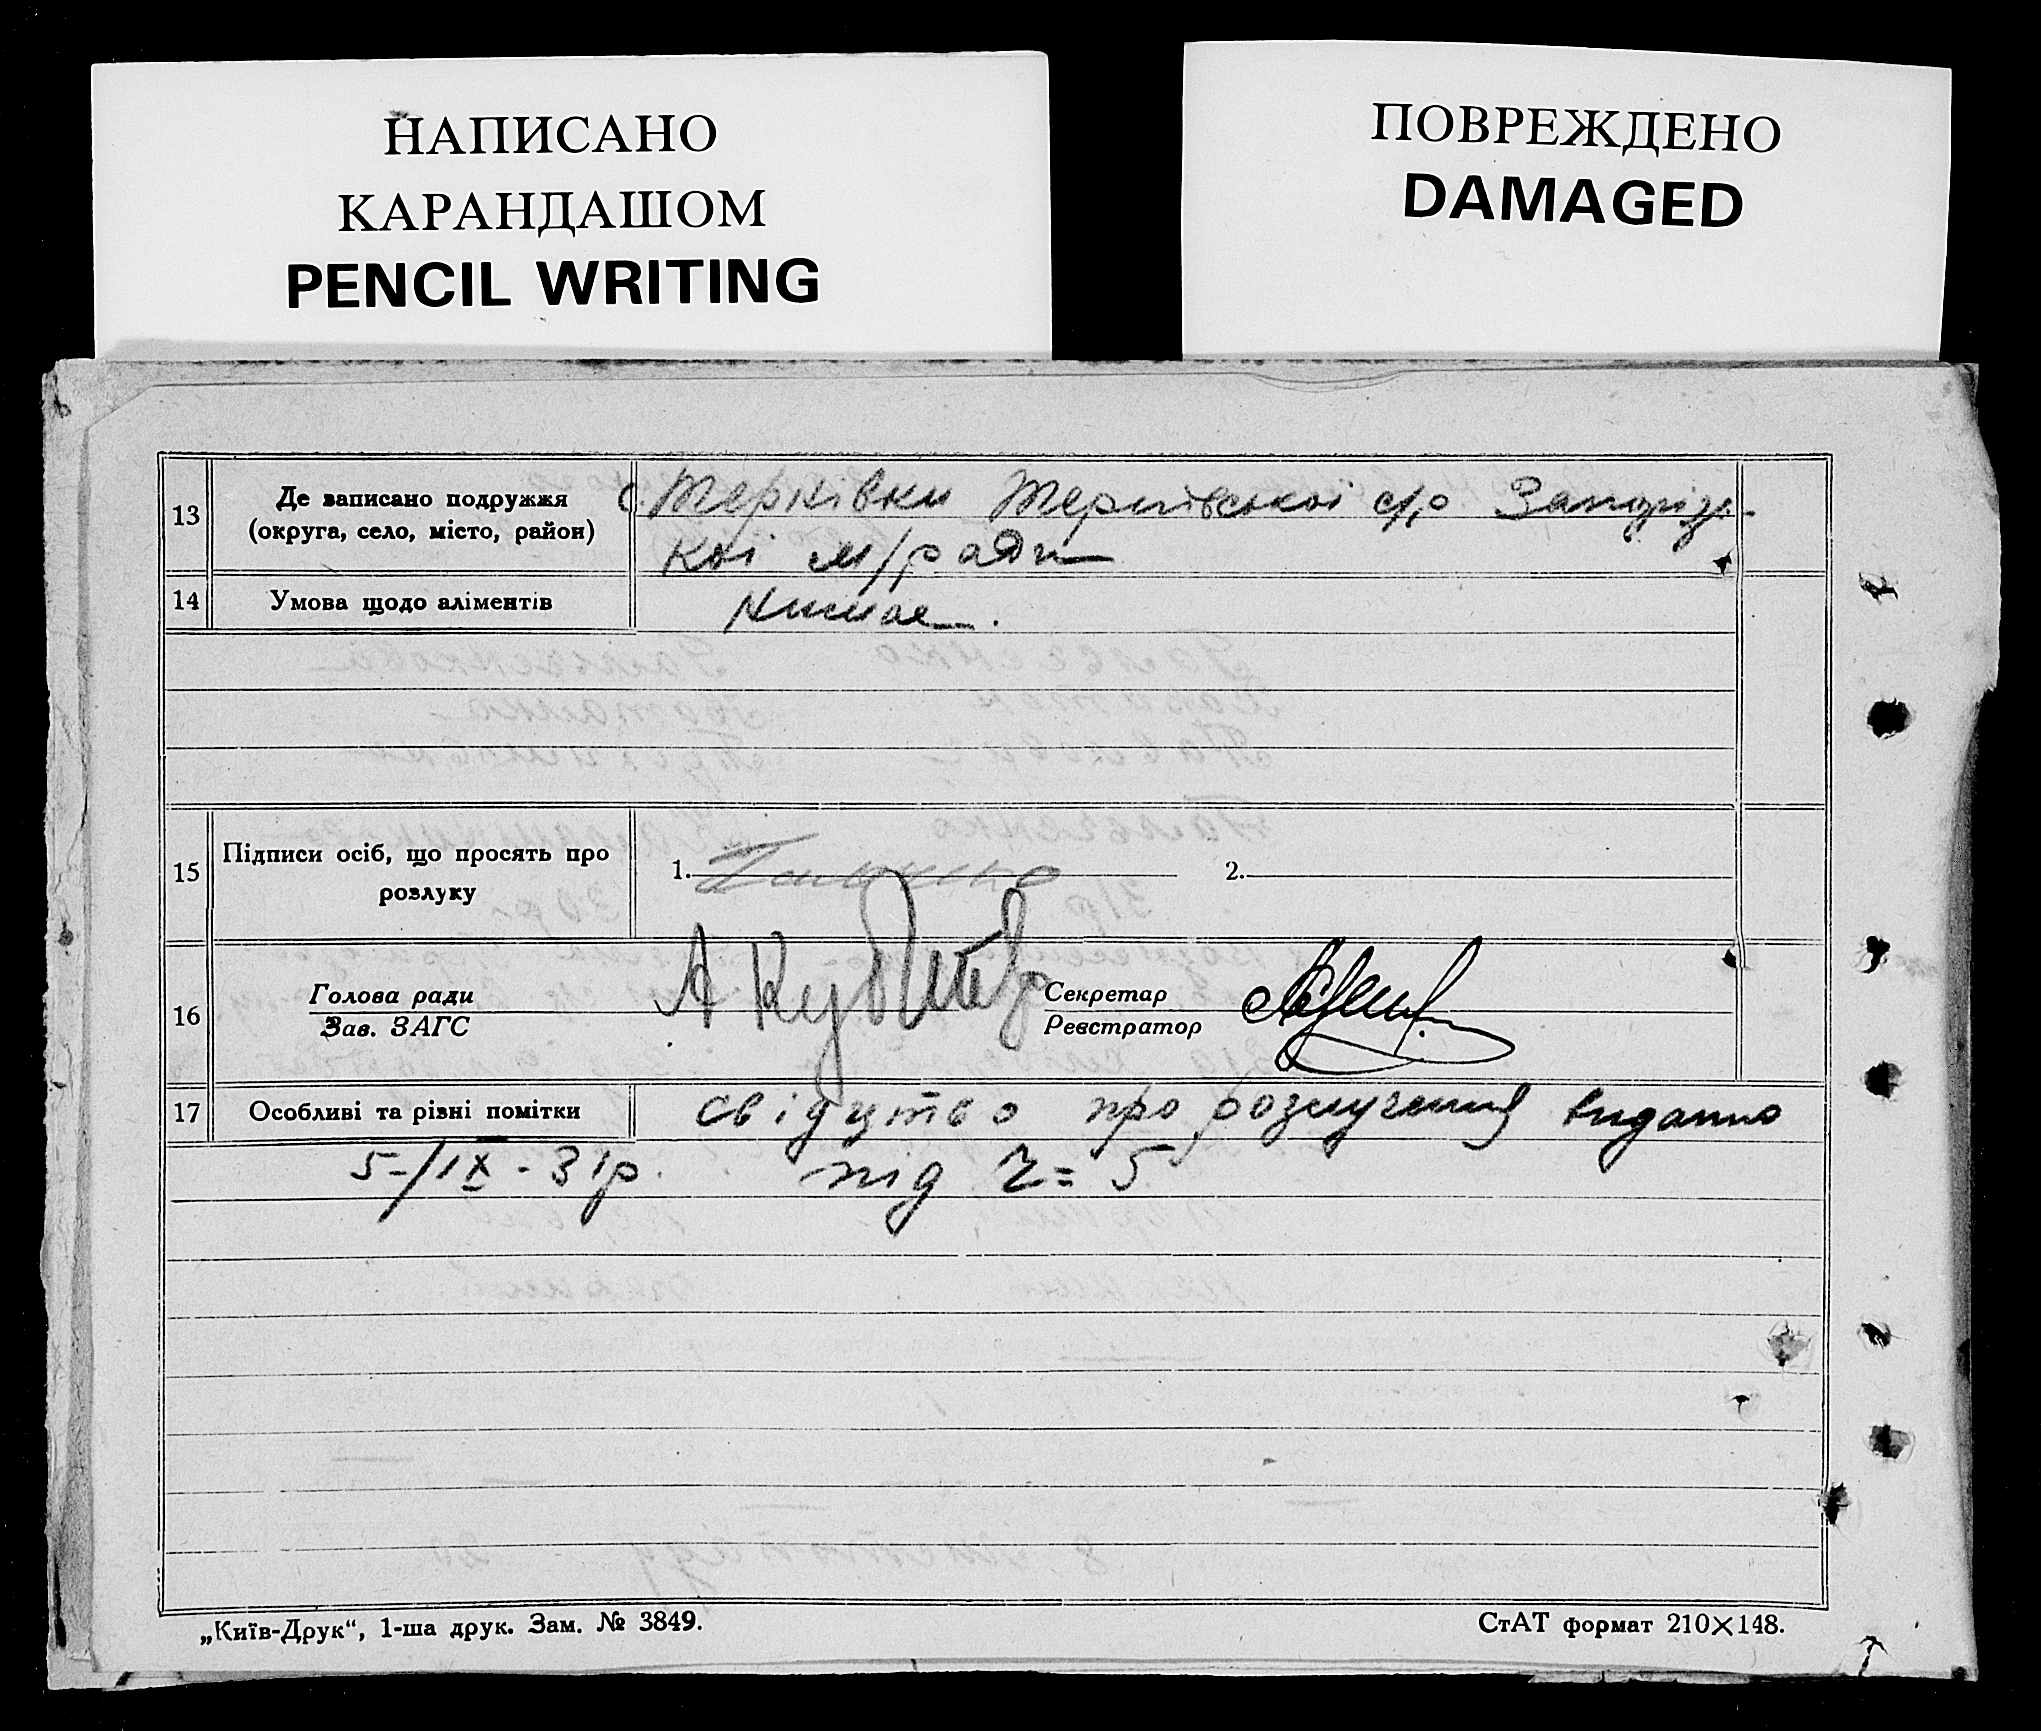 НАПИСАНО
КАРАНДАШОМ
PENCIL WRITING
ПОВРЕЖДЕНО
DAMAGED
13 Де записано подружжя (округа, село, місто, район) с. Терпівки Терпівської с/р Запоріз-
кої м/ради
14 Умова щодо аліментів Немає.
15 Підписи осіб, що просять про розлуку 1. 2.
16 Голова ради
Зав. ЗАГС
Секретар
Реєстратор
17 Особливі та різні помітки свідутво про розлучення видано
5-/IX-31р. під ч = 5
„Київ-Друк“, 1-ша друк. Зам. № 3849.
СтАТ формат 210×148.